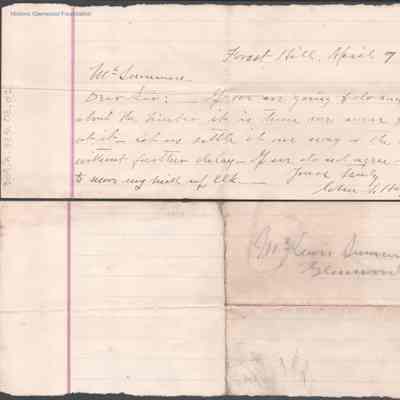 Historic Glenwood Foundation
Forest Hill, April 9
Mr Summers
Dear Sir: If you are going to do any
about the timber it is time we were
let us settle it one way or the
without further delay. If you do not agree
to move my mill up Elk. Yours truly
John
Mr Lewis Summers
Glenwood